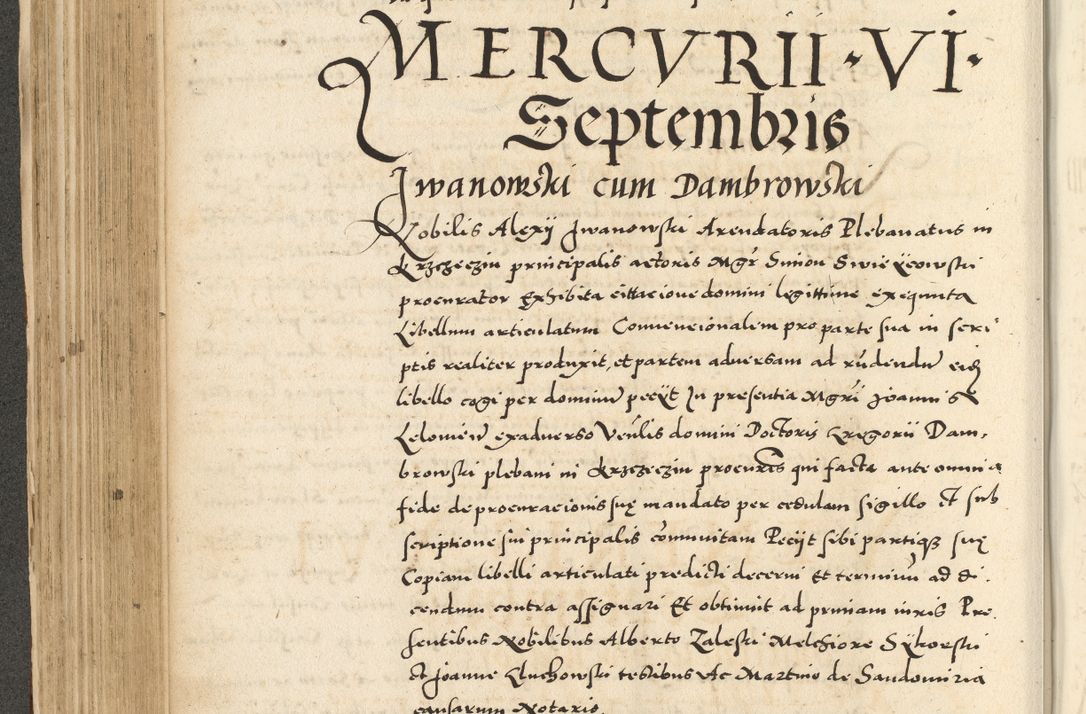 MERCVRII · VI ·
Septembris
Jwanowski cum Dambrowski
Nobilis Alexij Jwanowski Arendatoris Plebanatus in
Krzczeczin principalis actoris Mgr Simon Swie
procurator Exhibita cittacione domini legittime exequuta
Libellum articulatum Conuencionalem pro parte sua in scri
ptis realiter produxit, et partem aduersam ad rñdendũ eidẽ
libello cogi per dominũ pecijt In presentia Mgri Joannis
exaduerso Venlis domini Doctoris Gregorii Dam,
browski plebani in Krzczeczin procuris qui facta ante omnia
fide de procuracionis suę mandato per cedulam sigillo et sub
scriptione sui principalis cõmunitam Pecijt sibi partiqȝ suę
Copiam libelli articulati predicti decerni Et terminũ ad di,
cendum contra assignari Et obtinuit ad primam iuris Pre,
sentibus Nobilibus Alberto Zaleski Melchiore Sikorski
et Joanne Kluchowski testibus Ac Martino de Sandomiria
causarum Notario.